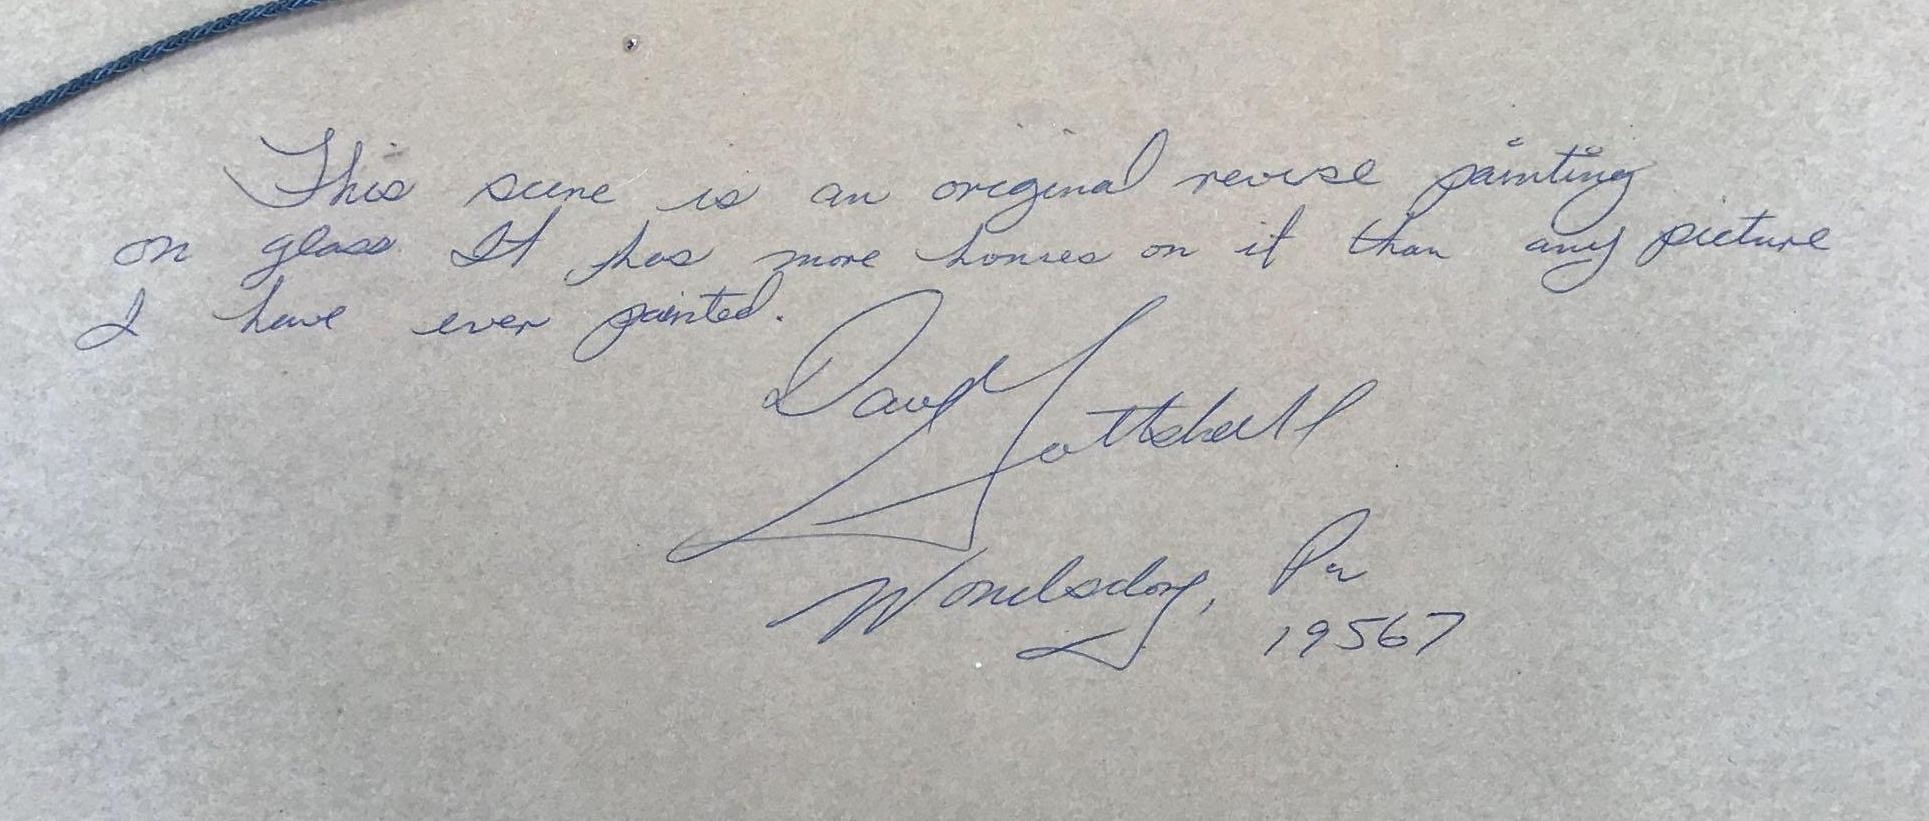 This scene is an original reverse painting
on glass. It has more houses on it than any picture
I have ever painted.
David Gottshall
Womelsdorf, Pa
19567